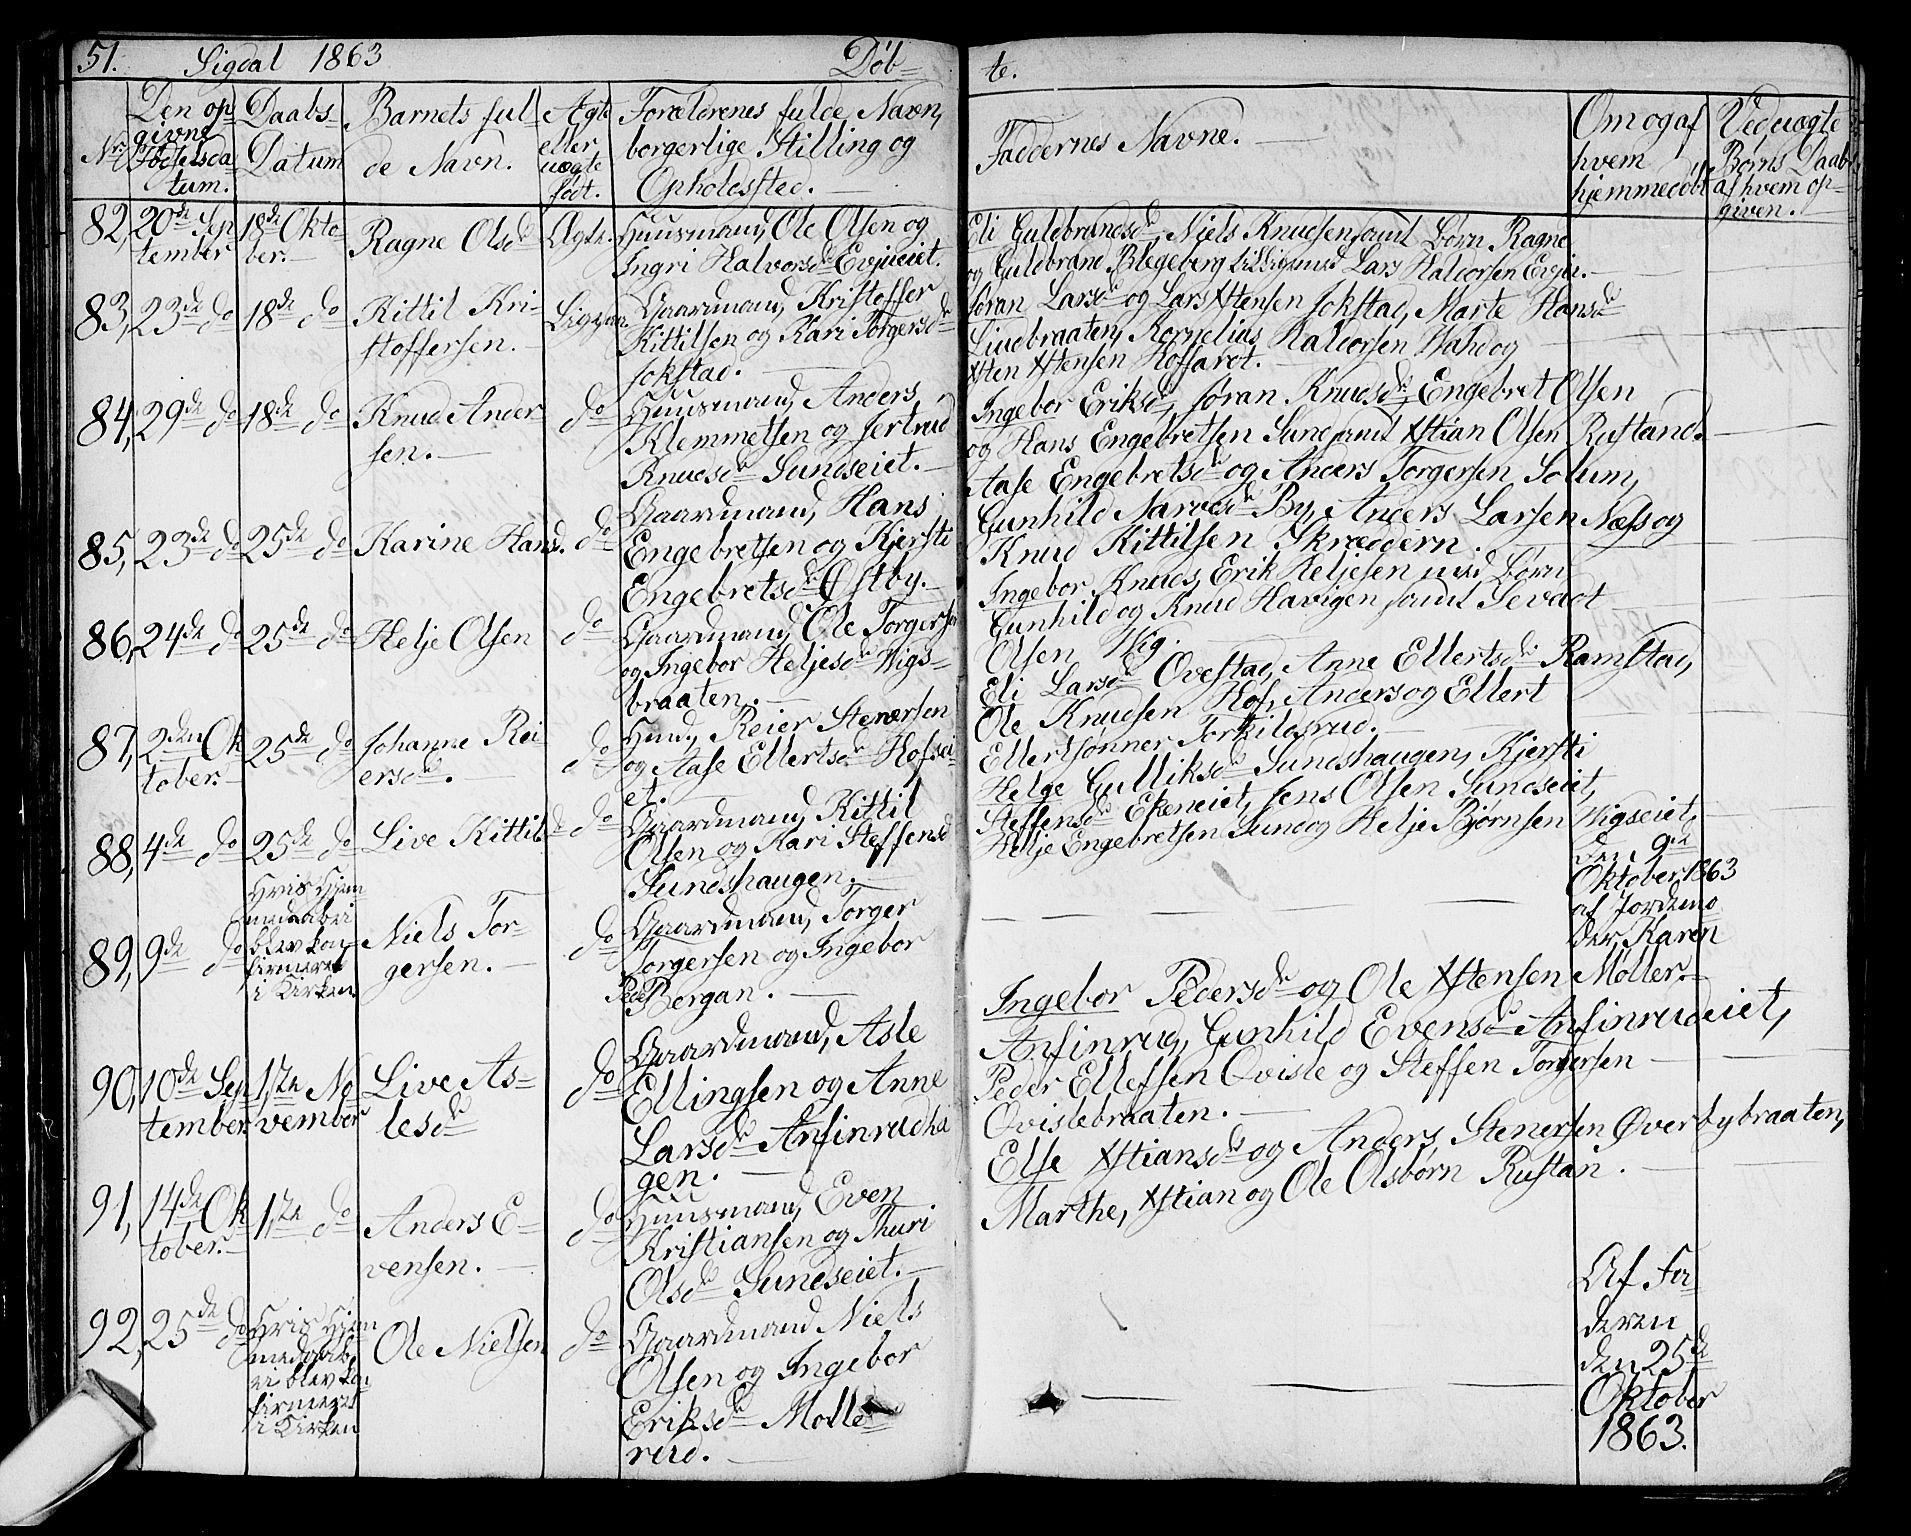 51. Sigdal 1863 Døb=
te.
Nr.
Den op
givne
Fødselsda
tum.
Daabs-
Datum
Barnets ful-
de Navn.
Ægte
eller
uægte
født.
Forældrenes fulde Navn,
borgerlige Stilling og
Opholdssted.
Faddernes Navne.
Om og af
hvem
hjemmedøbt
Ved uægte
Børns Daab
af hvem op-
given.
82, 20de Sep
tember
18de Okto
ber.
Ragne Olsd
Ægte.
Huusmand, Ole Olsen og
Ingri Halvorsd Evjueiet.
Eli Guldbrandsd, Niels Knudsen samt Børn Ragne
og Guldbrand Blegeberg Lars Halvorsen Evju.
83, 23de do
18de do
Kittil Kri-
stoffersen.
Gaardmand, Kristoffer
Kittilsen og Kari Torgersd
Jokstad.
Jøran Larsd og Lars Xstensen Jokstad, Marte Hansd
Lindbraaten, Kornelius Halvorsen og
Xsten Xstensen Hoffart.
84, 29de do
18de do
Knud Ander
sen.
do
Huusmand, Anders
Klemmetsen og Jertrud
Knudsd Sundseiet.
Ingebor Eriksd, Jøran Knudsd, Engebret Olsen
og Hans Engebretsen Sund samt Xstian Olsen Rustand.
85, 23de do
25de do
Karine Hansd.
do
Gaardmand, Hans
Engebretsen og Kjersti
Engebretsd Østby.
Aase Engebretsd og Anders Torgersen Solum,
Gunhild Narvesd By, Anders Larsen Næss og
Knud Kittilsen Skræddern.
86, 24de do
25de do
Helje Olsen
do
Gaardmand, Ole Torgersen
og Ingebor Heljesd Wigs=
braaten.
Ingebor Knuds, Erik Heljesen med Børn
Gunhild og Knud Havigen samt Sevadt
Olsen Wig
87, 2den Ok
tober.
25de do
Johanne Rei
ersd.
do
Huusd, Reier Stenersen
og Aase Ellertsd Hofsei
et.
Eli Larsd Ovestad, Anne Ellertsd Ramstad,
Ole Knudsen Hof, Anders og Ellert
Ellertsønner Torkildsrud.
88, 4de do
25de do
Live Kittilsd
do
Gaardmand, Kittil
Olsen og Kari Steffensd
Sundshaugen.
Helge Gulliksd Sundshaugen, Kjersti
Steffensd Ekeneiet, Jens Olsen Sundseiet,
Helje Engebretsen Sund og Helje Bjørnsen Wigseiet,
89, 9de do
Hvis Hjem
medaab
blev kon-
firmeret
i Kirken
Niels Tor-
gersen.
do
Gaardmand, Torger
Torgersen og Ingebor
Bergan.
den 9de
Oktober 1863
af Jordemo
der Karen
Møller.
90, 10de Sep
tember.
1ste No
vember
Live As=
lesd
do
Gaardmand, Asle
Ellingsen og Anne
Larsd Anfinrudha
gen.
Ingebor Pedersd og Ole Xstensen
Anfinrud, Gunhild Evensd Anfinrudeiet,
Peder Ellefsen Qvisle og Steffen Torgersen
Qvislebraaten.
91, 14de Ok
tober.
1ste do
Anders E-
vensen.
do
Huusmand, Even
Kristiansen og Thuri
Olsd Sundseiet.
Else Xstiansd og Anders Stenersen Øverbybraaten,
Marthe, Xstian og Ole Olsbørn Rustan.
92, 25de do
Hvis Hjem
medaab
blev kon
firmeret
i Kirken
Ole Nielsen
do
Gaardmand Niels
Olsen og Ingebor
Eriksd Molle
rud.
Af Fa
deren
den 25de
Oktober
1863.